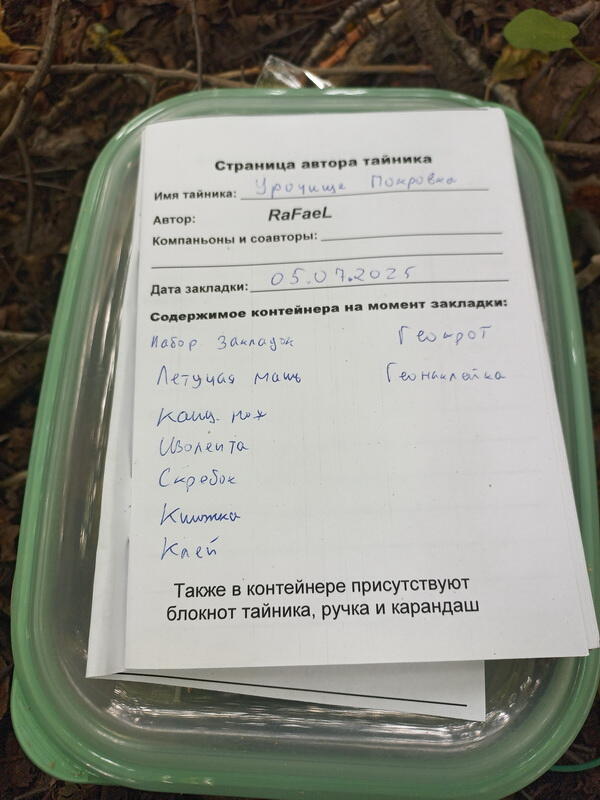 Страница автора тайника
Имя тайника: Урочище Покровка
Автор: RaFaeL
Компаньоны и соавторы:
Дата закладки: 05.07.2025
Содержимое контейнера на момент закладки:
Набор Закладок
Летучая мышь
Канц. нож
Изолента
Скребок
Книжка
Клей
Геокрот
Геонаклейка
Также в контейнере присутствуют
блокнот тайника, ручка и карандаш